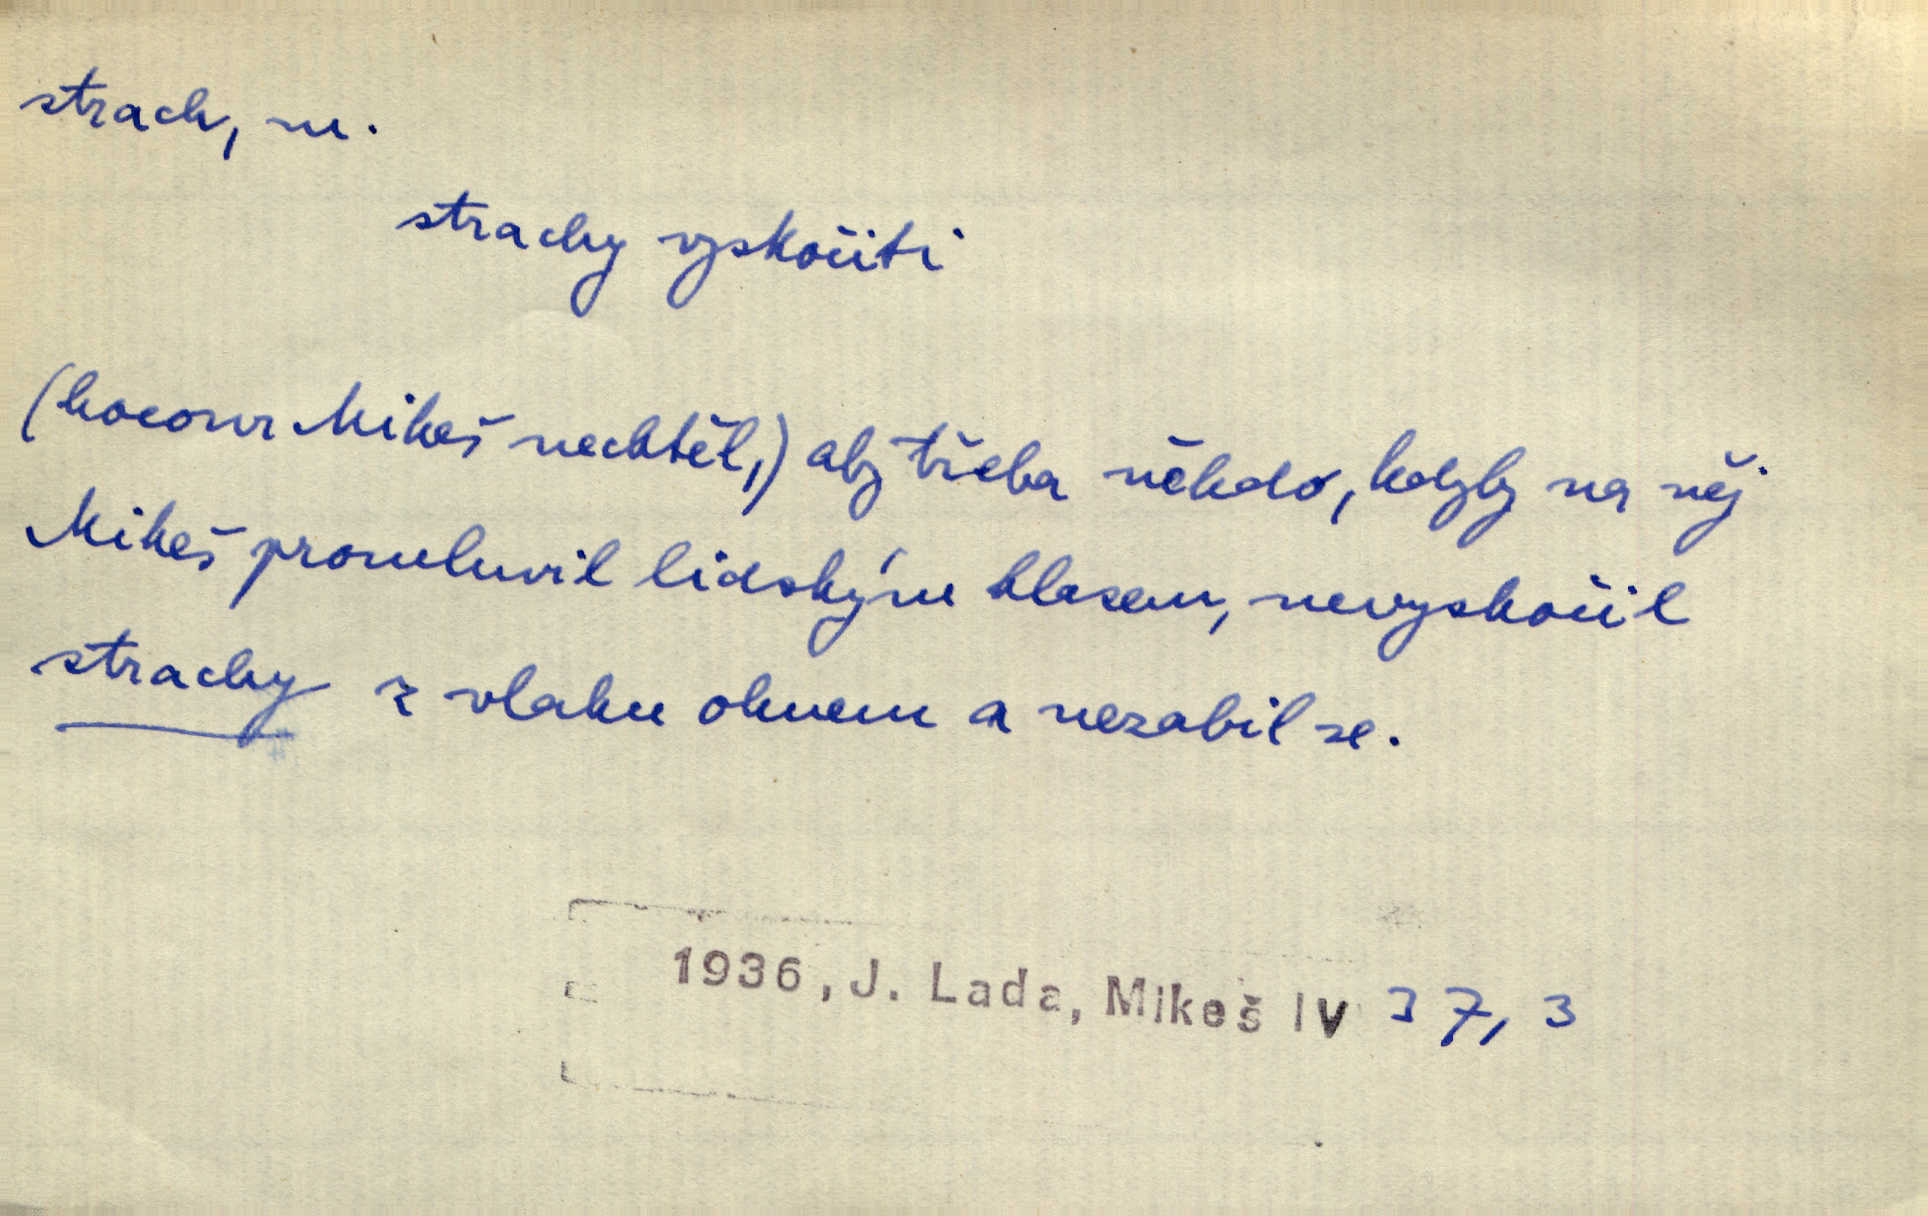 strach, m.
strachy vyskočiti
(kocour Mikeš nechtěl,) aby třeba někdo, kdyby na něj
Mikeš promluvil lidským hlasem, nevyskočil
strachy z vlaku oknem a nezabil se.
1936, J. Lada, Mikeš IV 37, 3